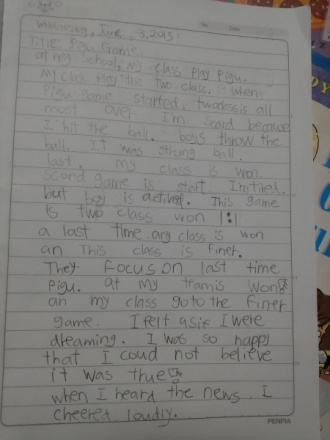 wednesday, June, 3, 2015:
Title: Pigu Game.
at my school, my class play Pigu.
My class play the Two class. when
Pigu game started, twoclass is all
most over I'm scard because
I hit the ball. boys throw the
ball. It was strung ball.
last, my class is won.
Scond game is start. I'm tired.
but boy is actived. This game
is two class won 1:1
a last time any class is won
an This class is finer.
They focus on last time
Pigu. at my teamis won
an my class go to the finer
game. I felt asif I were
dreaming. I was so happy
that I coud not believe
it was true
when I heard the news. I
cheered loudly.
PENPIA